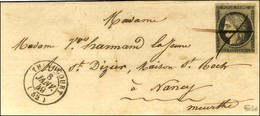 Madame
Madame Vve Harmand la Jeune
St Dizier, Maison St Roch
à Nancy
Meurthe
8
JANV.
49